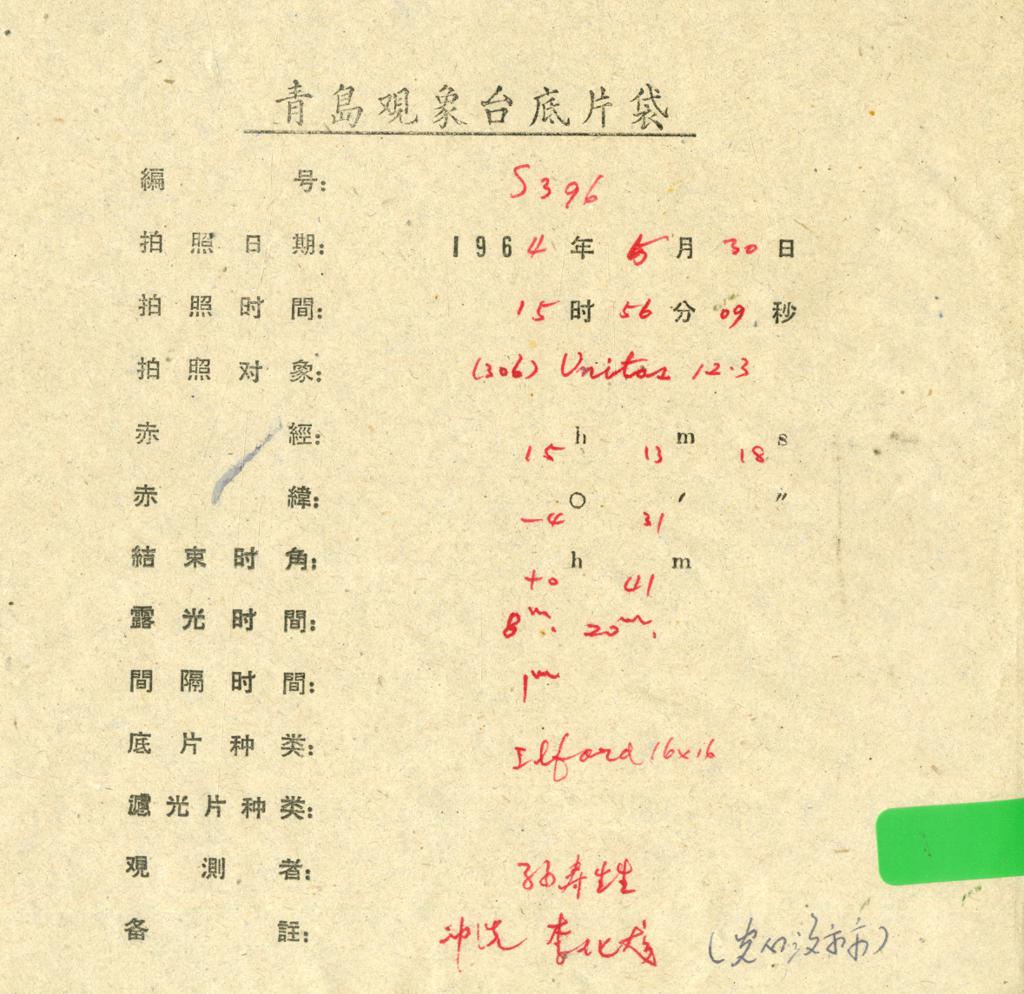 青島观象台底片袋
編号: S396
拍照日期: 1964年5月30日
拍照时間: 15时56分09秒
拍照对象: (306) Unitas 12.3
赤經: 15h 13m 18s
赤緯: -4° 31′ ″
結束时角: +0h 41m
露光时間: 8m. 20m.
間隔时間: 1m
底片种类: Ilford 16x16
濾光片种类:
观測者: 孙寿
备註: 冲洗 李